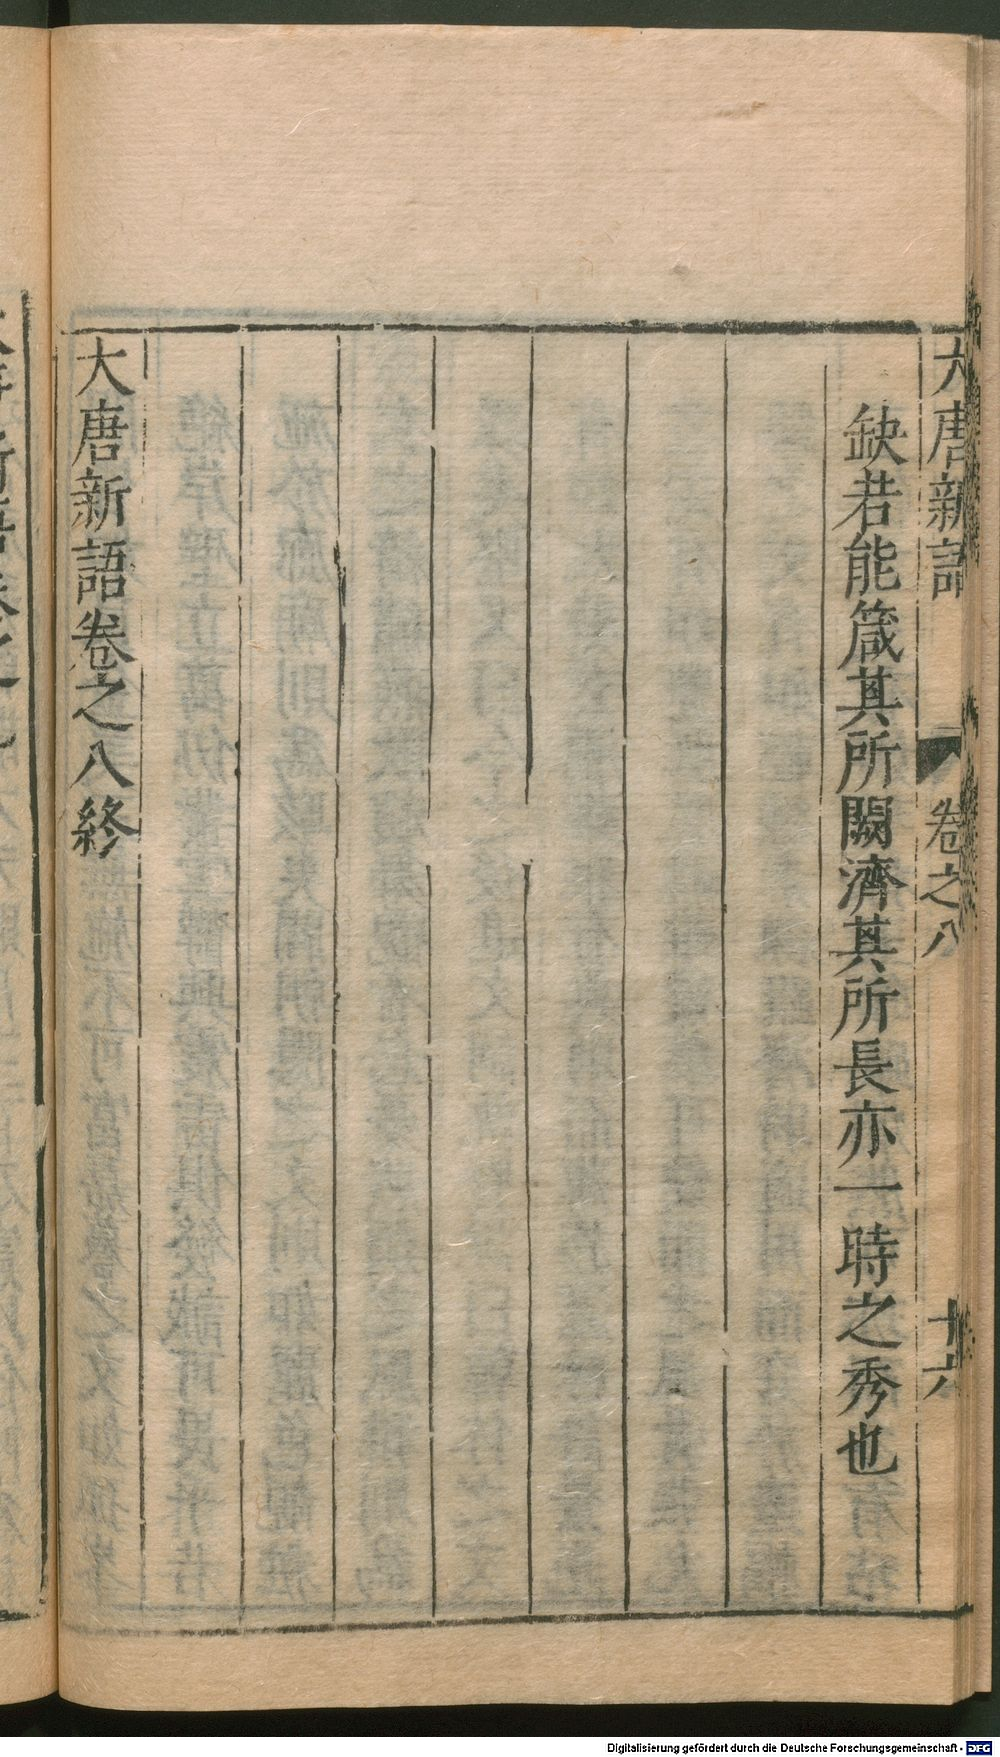 大唐新語 卷之八 十六
缺若能箴其所闕濟其所長亦一時之秀也
大唐新語卷之八終
Digitalisierung gefördert durch die Deutsche Forschungsgemeinschaft - DFG